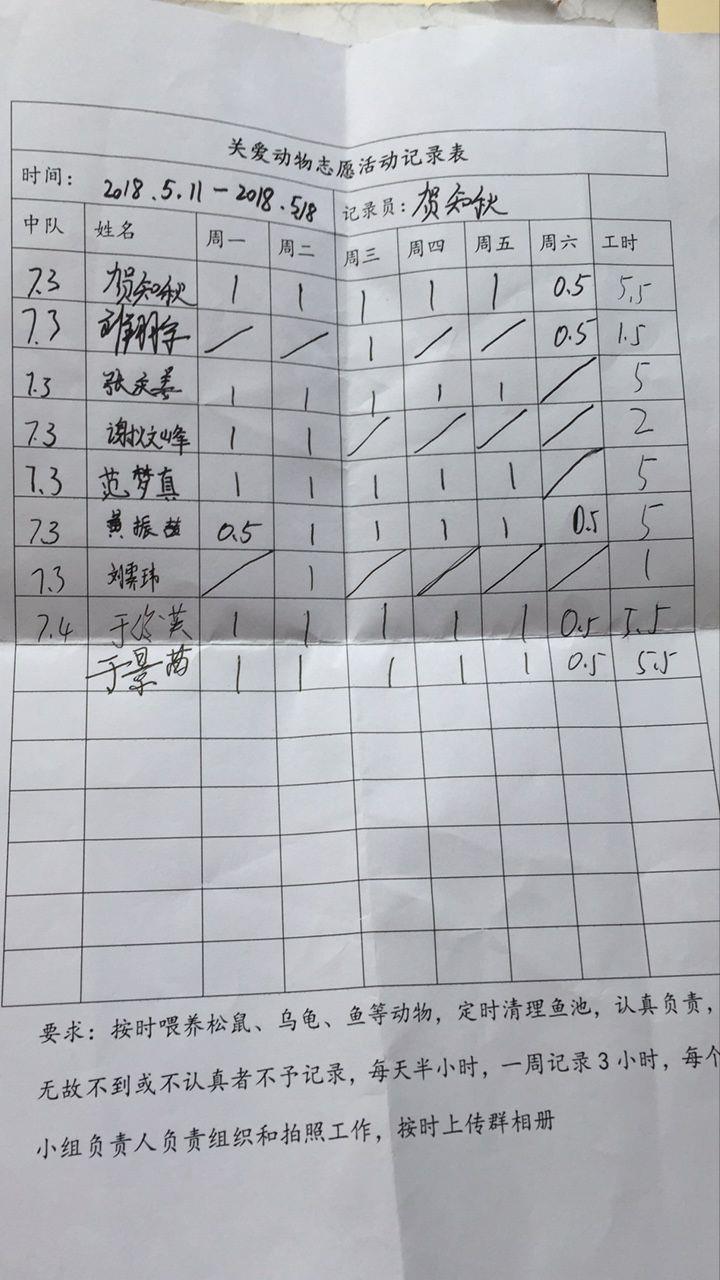 关爱动物志愿活动记录表
时间： 2018.5.11－2018.5/18 记录员：贺知秋
中队 姓名 周一 周二 周三 周四 周五 周六 工时
7.3 贺知秋 1 1 1 1 1 0.5 5.5
7.3 / / 1 / / 0.5 1.5
7.3 1 1 1 1 1 / 5
7.3 1 1 / / / / 2
7.3 范梦真 1 1 1 1 1 / 5
7.3 0.5 1 1 1 1 0.5 5
7.3 / 1 / / / / 1
7.4 1 1 1 1 1 0.5 5.5
于景茜 1 1 1 1 1 0.5 5.5
要求：按时喂养松鼠、乌龟、鱼等动物，定时清理鱼池，认真负责，
无故不到或不认真者不予记录，每天半小时，一周记录3小时，每个
小组负责人负责组织和拍照工作，按时上传群相册